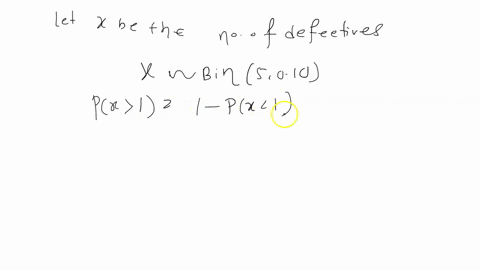 let x be the no. of defectives
X ~ Bin (5, 0.10)
P(x > 1) = 1 - P(x < 1)